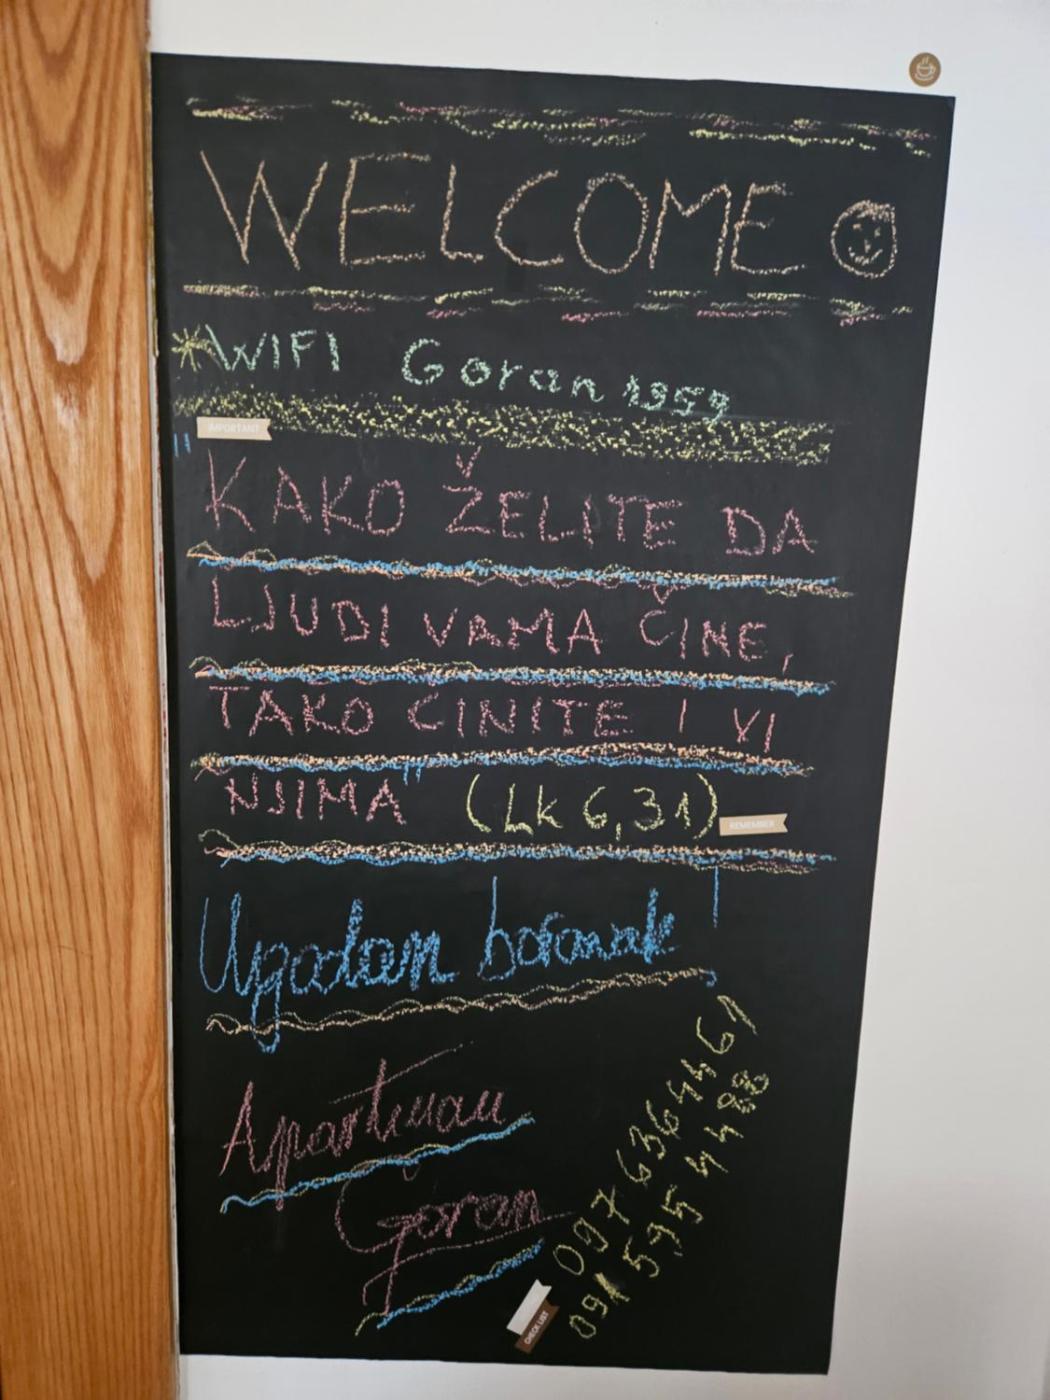 WELCOME
WIFI Goran 1959
IMPORTANT
"KAKO ŽELITE DA
LJUDI VAMA ČINE,
TAKO ČINITE I VI
NJIMA" (Lk 6,31)
REMEMBER
Ugodan boravak!
Apartman
Goran
097 6364461
091 595 4488
CHECK LIST